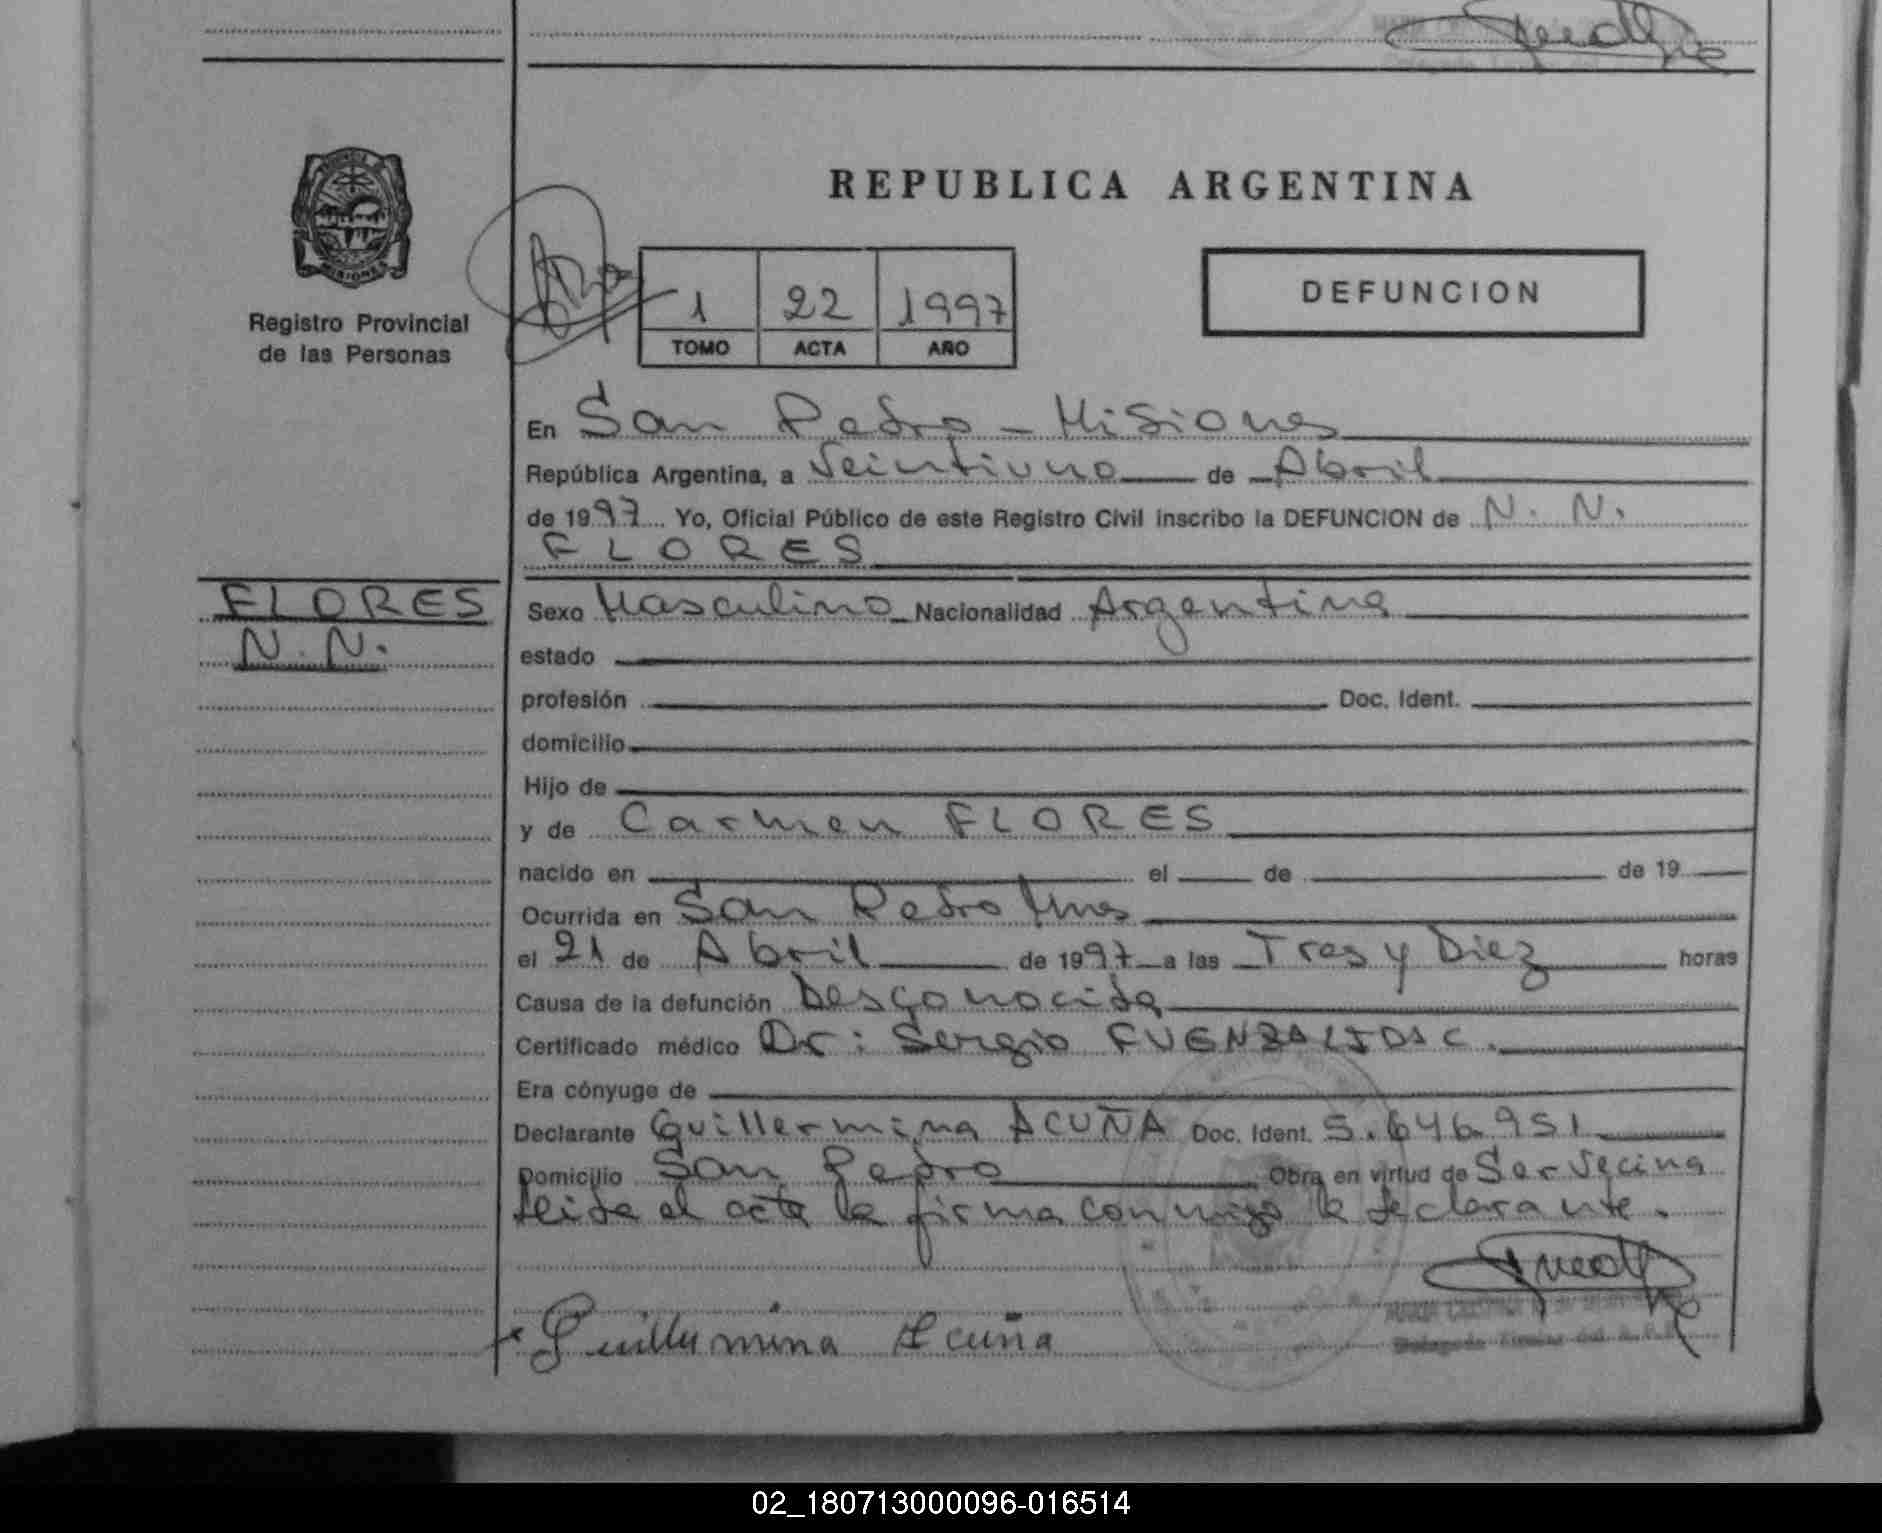 REPUBLICA ARGENTINA
PROVINCIA DE
MISIONES
Registro Provincial
de las Personas
1 22 1997
TOMO ACTA AÑO
DEFUNCION
En San Pedro - Misiones
República Argentina, a Veintiuno de Abril
de 1997 Yo, Oficial Público de este Registro Civil inscribo la DEFUNCION de N. N.
FLORES
FLORES
N. N.
Sexo Masculino Nacionalidad Argentina
estado
profesión Doc. Ident.
domicilio
Hijo de
y de Carmen FLORES
nacido en el de de 19
Ocurrida en San Pedro Mnes
el 21 de Abril de 1997 a las Tres y Diez horas
Causa de la defunción Desconocida
Certificado médico Dr: Sergio FUENZALIDA C.
Era cónyuge de
Declarante Guillermina ACUÑA Doc. Ident. 5.646.951
Domicilio San Pedro Obra en virtud de Ser Vecina
Leida el acta la firma conmigo la declarante.
Guillermina Acuña
02_180713000096-016514